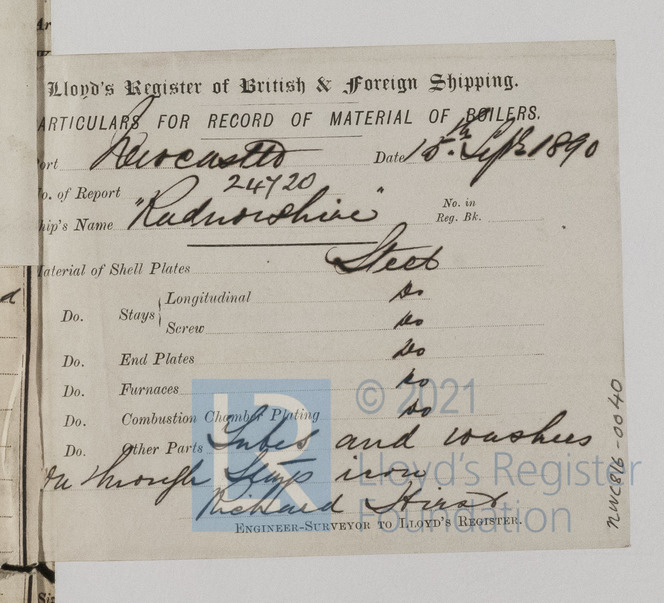 Lloyd's Register of British & Foreign Shipping.
ARTICULARS FOR RECORD OF MATERIAL OF BOILERS.
ort Newcastle Date 15th Sept 1890
o. of Report 24720
hip's Name "Radnorshire" No. in Reg. Bk.
Material of Shell Plates Steel
Do. Stays Longitudinal Do
Screw Do
Do. End Plates Do
Do. Furnaces Do
Do. Combustion Chamber Plating Do
Do. Other Parts Tubes and washers
through Stays iron
Richard Hirst
ENGINEER-SURVEYOR TO LLOYD'S REGISTER.
NWC816-0040
LR
© 2021
Lloyd's Register
Foundation